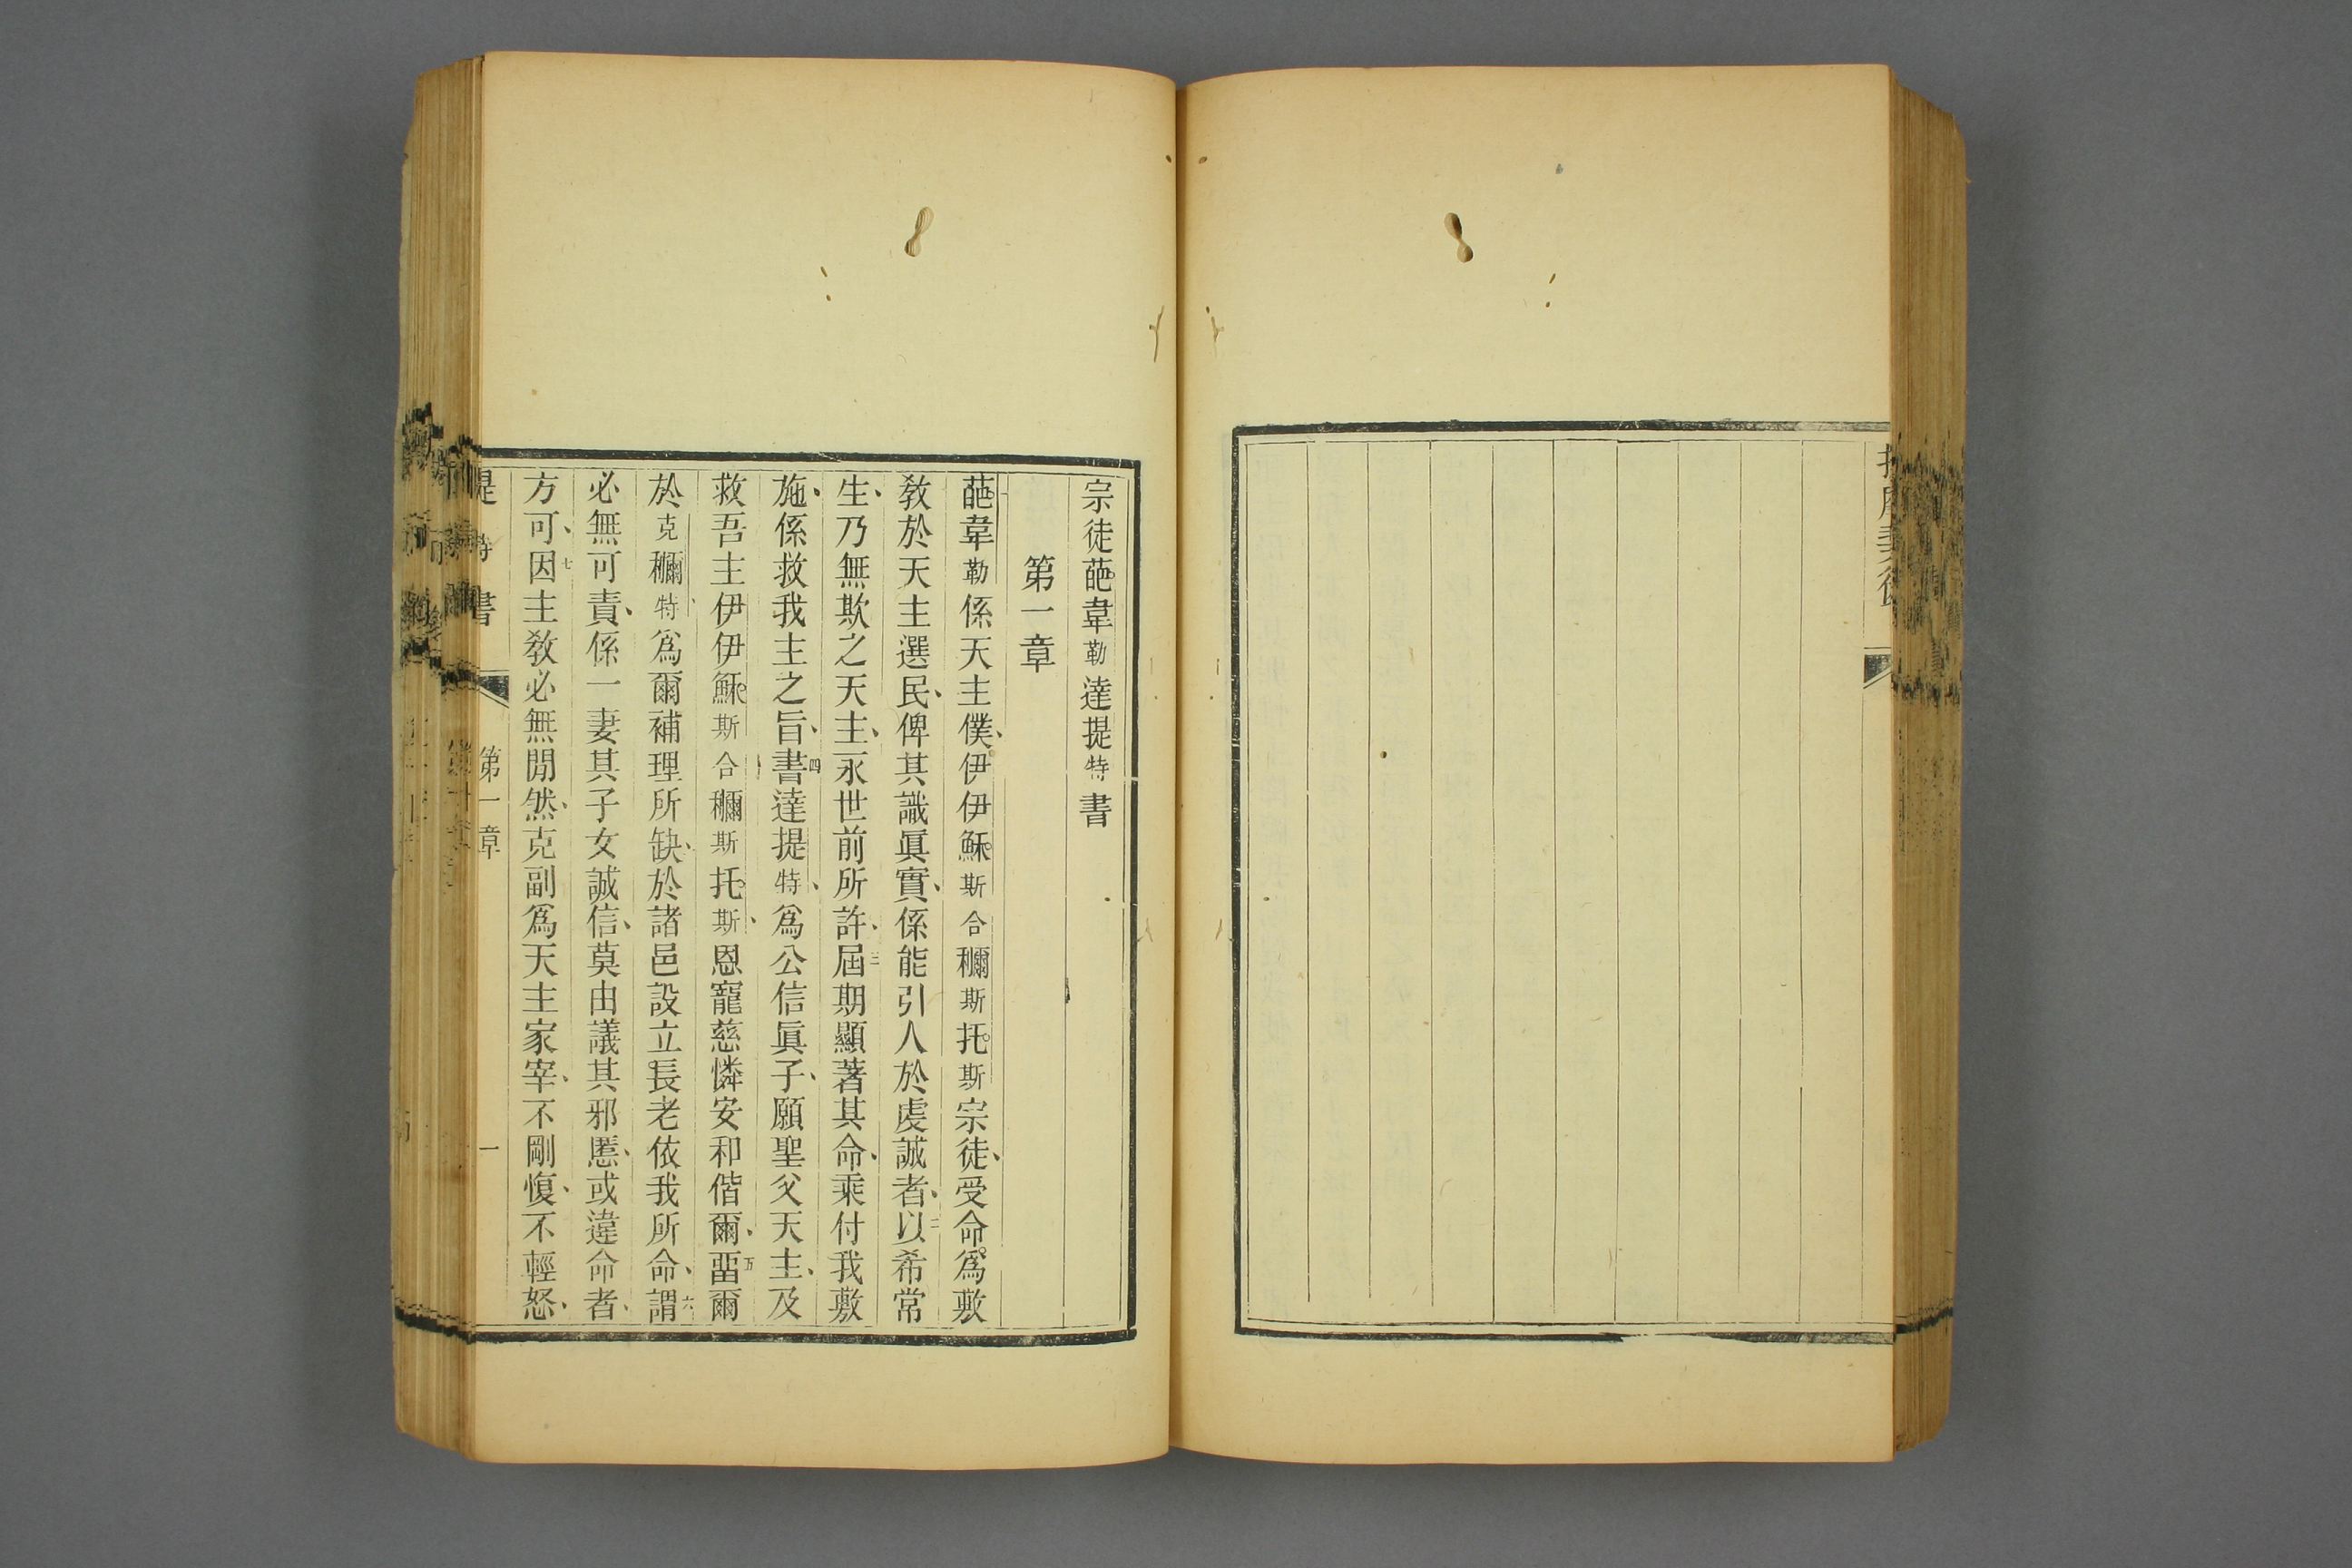 宗徒葩韋勒達提特書
第一章
葩韋勒係天主僕、伊伊穌斯合穪斯托斯宗徒、受命爲敷
教於天主選民、俾其識眞實、係能引人於虔誠者、二以希常
生、乃無欺之天主、永世前所許、三屆期顯著其命、乘付我敷
施、係救我主之旨、四書達提特、爲公信眞子、願聖父天主、及
救吾主伊伊穌斯合穪斯托斯、恩寵慈憐安和偕爾、五畱爾
於克穪特、爲爾補理所缺、於諸邑設立長老依我所命、六謂
必無可責、係一妻其子女誠信、莫由議其邪慝、或違命者、
方可、七因主敎必無閒然、克副爲天主家宰、不剛愎、不輕怒、
提特書 第一章 一